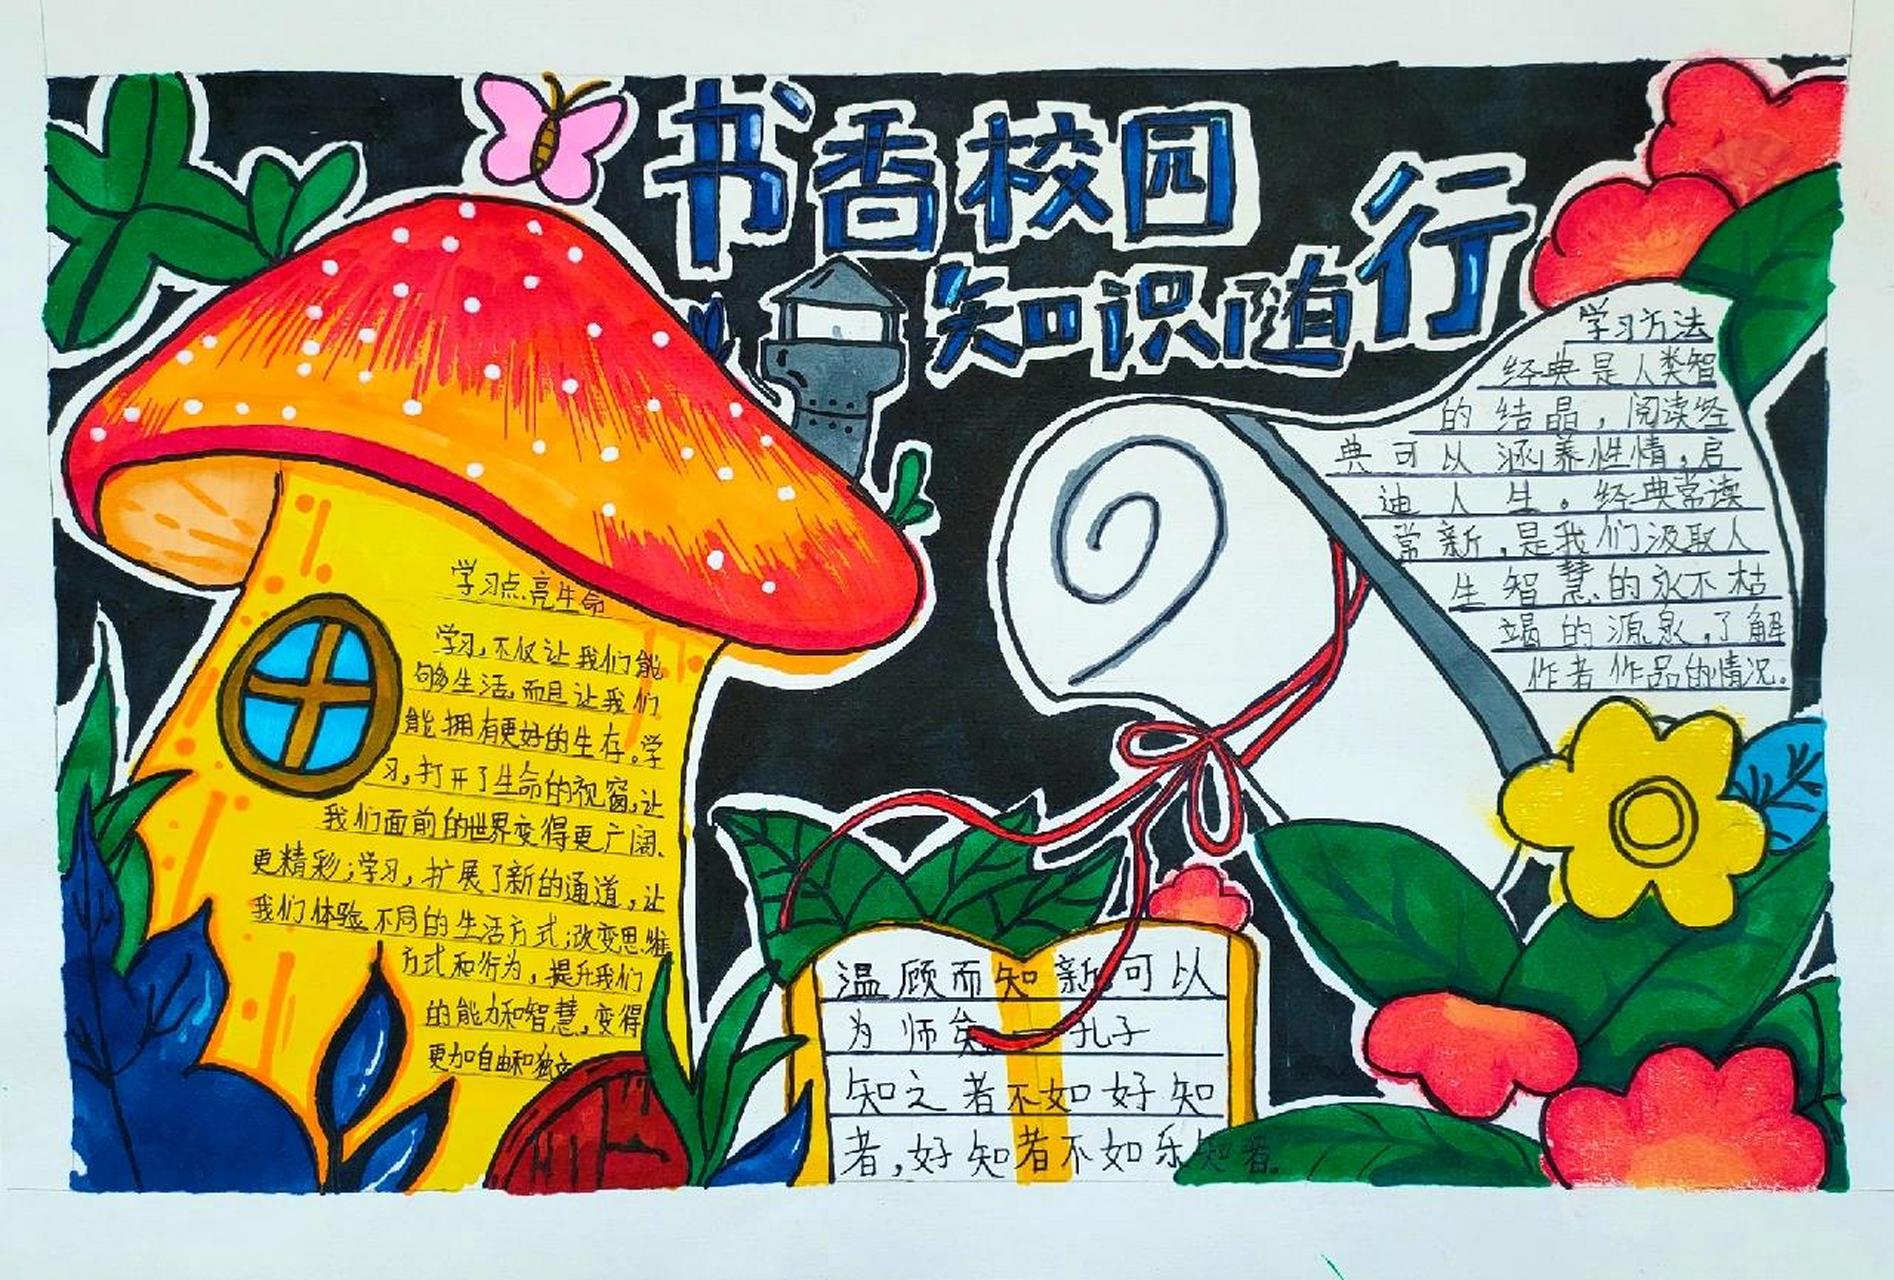 书香校园
知识随行
学习点亮生命
学习,不仅让我们能
够生活,而且让我们
能拥有更好的生存。学
习,打开了生命的视窗,让
我们面前的世界变得更广阔、
更精彩;学习,扩展了新的通道,让
我们体验不同的生活方式;改变思维
方式和行为,提升我们
的能力和智慧,变得
更加自由和独立
学习方法
经典是人类智
的结晶,阅读经
典可以涵养性情,启
迪人生。经典常读
常新,是我们汲取人
生智慧的永不枯
竭的源泉,了解
作者作品的情况。
温顾而知新可以
为师矣——孔子
知之者不如好知
者,好知者不如乐知者。